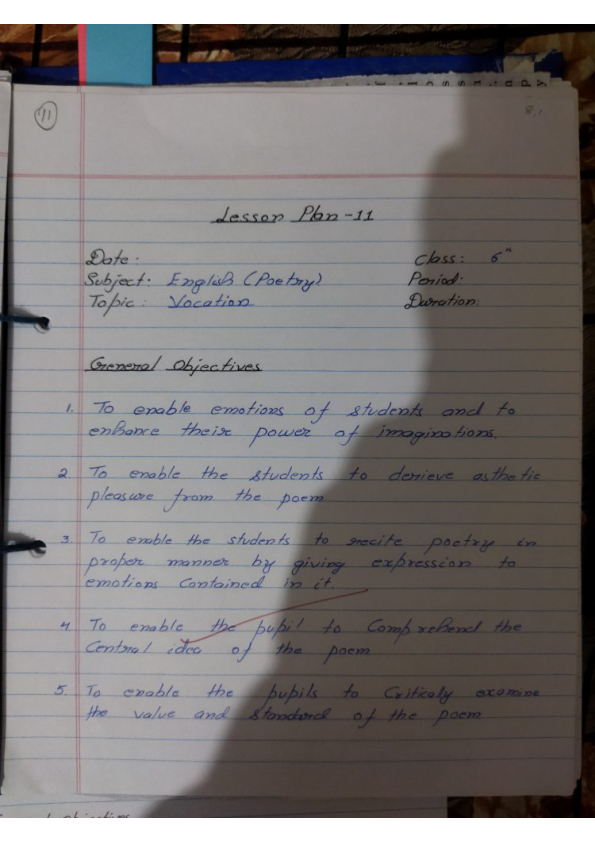 11
8,1
Lesson Plan -11
Date : Class : 6th
Subject: English (Poetry) Period:
Topic : Vocation Duration:
General Objectives
1. To enable emotions of students and to
enhance their power of imaginations.
2. To enable the students to derieve asthetic
pleasure from the poem
3. To enable the students to recite poetry in
proper manner by giving expression to
emotions Contained in it.
4. To enable the pupil to Comprehend the
Central idea of the poem
5. To enable the pupils to Critically examine
the value and standard of the poem